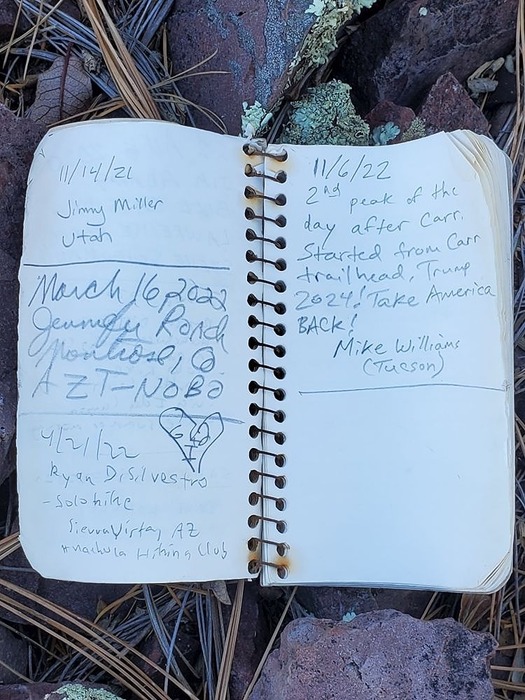 11/14/21
Jimmy Miller
Utah
March 16, 2022
Jennifer Roach
Montrose, CO
AZT-NOBO
4/21/22
Ryan DiSilvestro
- Solo hike
Sierra Vista, AZ
Huachuca Hiking Club
11/6/22
2nd peak of the
day after Carr.
Started from Carr
trailhead, Trump
2024! Take America
BACK!
Mike Williams
(Tucson)